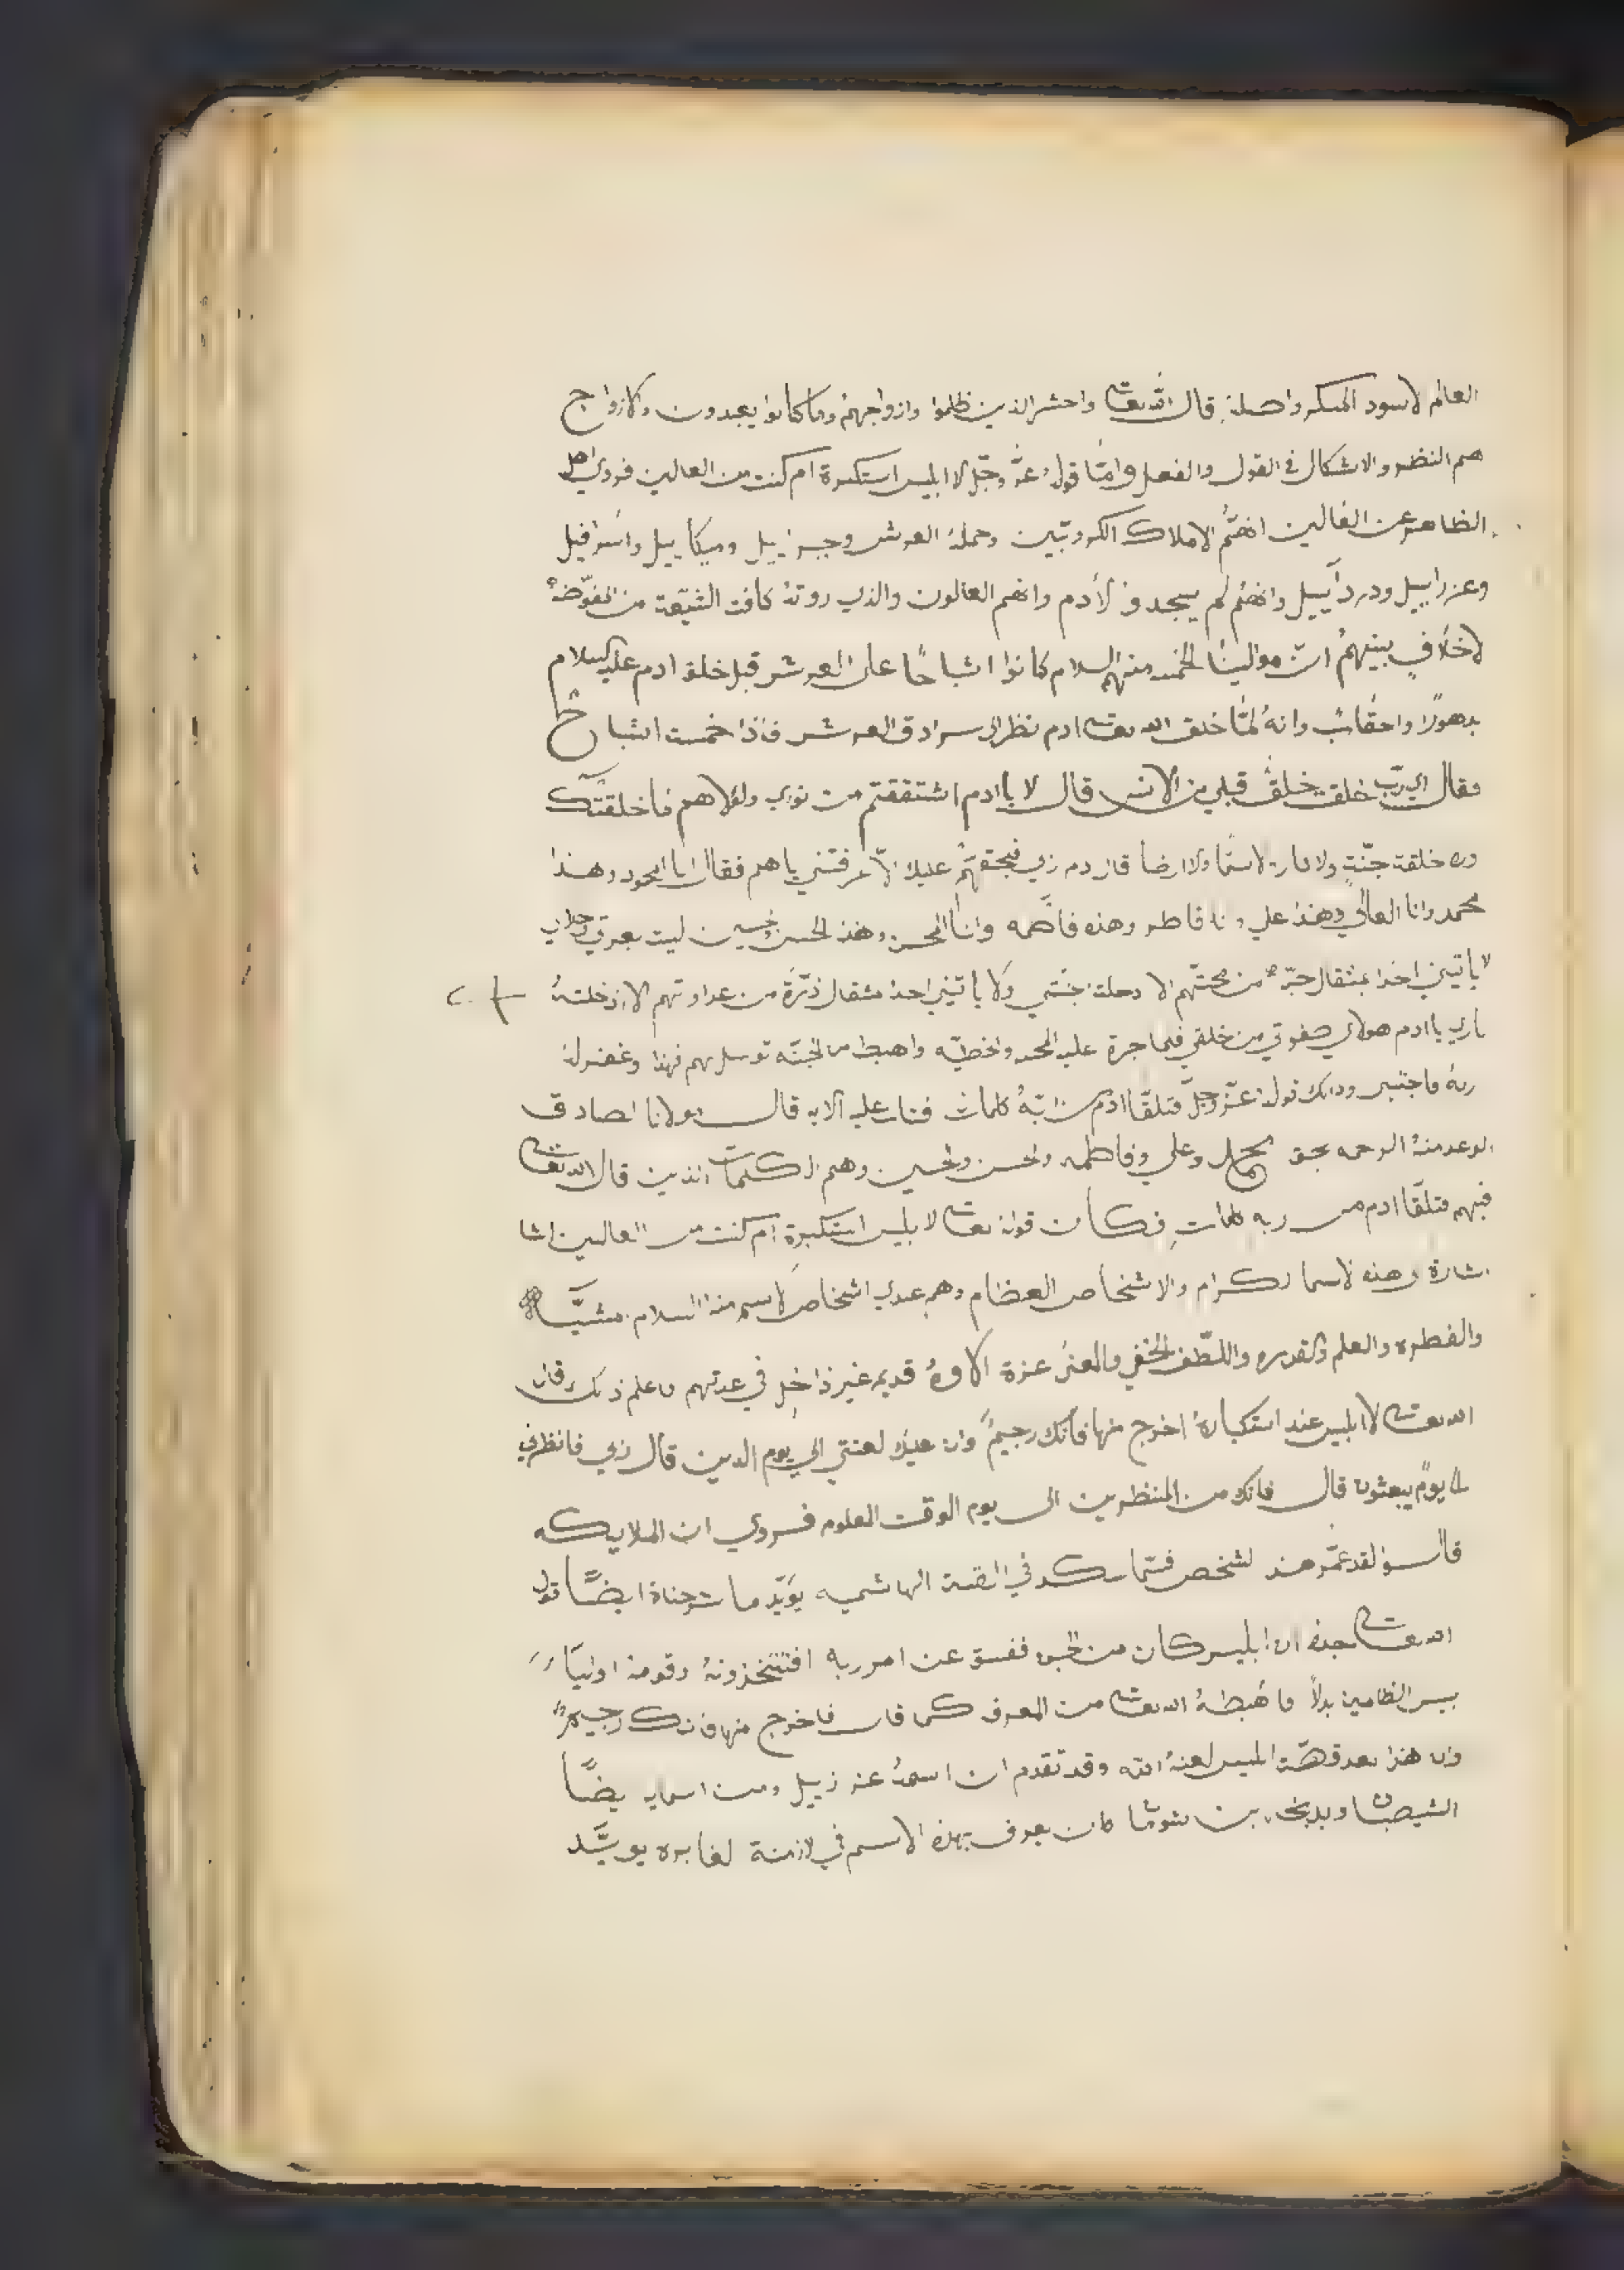 العالم لاسود المنكر واهله قال الله تعالى واحشر الذين ظلموا وازواجهم وما كانوا يعبدون والازواج
هم النظر والاشكال في القول والفعل وامّا قوله عزّ وجّل لابليس استكبرة ام كنت من العالين فروي اهل
الظاهر عن العالين انهمُّ الاملاك الكروبّين وحملة العرش وجبرئيل وميكاييل واسرافيل
وعزراييل ودرداييل وانهمُ لم يسجدو لأدم وانهم العالون والذي روتهُ كافت الشيّعة من المفوّضهْ
لاخلافٍ بينهمُ انّ موالينا الخمسه منهم السلام كانوا اشباحًا على العرش قبل خلق ادم عليه السلام
بدهورًا واحقابُ وانهُ لمّا خلق الله تعالى ادم نظر الى سرادق العرش فاذا خمست اشباحٌ
فقال اي ربّ خلقت خلقٌ قبلي من الانس قال لا ياادم اشتققتم من نوري ولولاهم ماخلقتك
ولا خلقة جنّتٍ ولا نار ولاسما ولا ارضا قال ادم ربي فبحقهمُّ عليك الاّ عرفتني ياهم فقال انا المحمود وهذا
محمد وانا العاليُ وهذا علي وانا فاطر وهذه فاطمه وانا المحسن وهذا الحسن والحسين ليت بعزتي وجلالي
لا ياتيني احدًا بمثقال حبّه من محبتّهم الا دخلته جنتي ولا ياتيني احد مثقال ذرّة من عداوتهم الا ادخلتهُ
ناري ياادم هولاي صفوتي من خلقي فلما جرة عليه المحنه والخطيّه واهبط من الجنّه توسل بهم فهذا وغفر له
ربهُ فاجتبى وذلك قوله عزّ وجلّ فتلقّا ادم من ربّهُ كلماتٌ فتاب عليه الايه قال مولانا الصادق
الوعد منهُ الرحمه بحق محمد وعلي وفاطمه والحسن والحسين وهم الكلمات الذين قال الله تعالى
فيهم فتلقّا ادم من ربه كلماتٍ فكان قوله تعالى لابليس استكبرة ام كنت من العالين اشا
اشارة وهذه لاسما الكرام والاشخاص العظام وهم عندي اشخاص لاسم منه السلام مشيّة
والفطره والعلم والقدره واللّطف الخفي والمعنىُ عزة الاوهُ قديم غير داخلٍ في عدتهم فاعلم ذلك وقال
الله تعالى لابليس عند استكبارهُ اخرج منها فانك رجيمٌ وان عليك لعنتي الى يوم الدين قال ربي فانظرني
الى يومً يبعثون قال فانك من المنظرين الى يوم الوقت المعلوم فروي ان الملايكه
قالو لقد عمّر هذ لشخص في القبة الهاشميه يوّيد ما شرحناهُ ايضًا قول
الله تعالى ان ابليس كان من الجن ففسق عن امر ربه افتتخذونهُ وقومه اولياء
بيس الظالمين بدلاً فاهبطهُ الله تعالى من المعرفه كما قال فاخرج منها فانك رجيمٌ
وان هذا بعد قصّة ابليس لعنهُ الله وقد تقدم ان اسمهُ عزازيل ومن اسمايه ايضًا
الشيصبان وبديخ بن كان يعرف بهذه الاسم في لازمنة لغابره يويّد